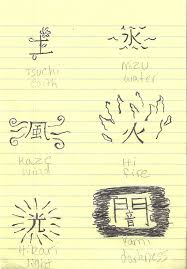 土 水
Tsuchi Mizu
Earth water
風 火
Kaze Hi
wind fire
光 闇
Hikari Yami
light darkness